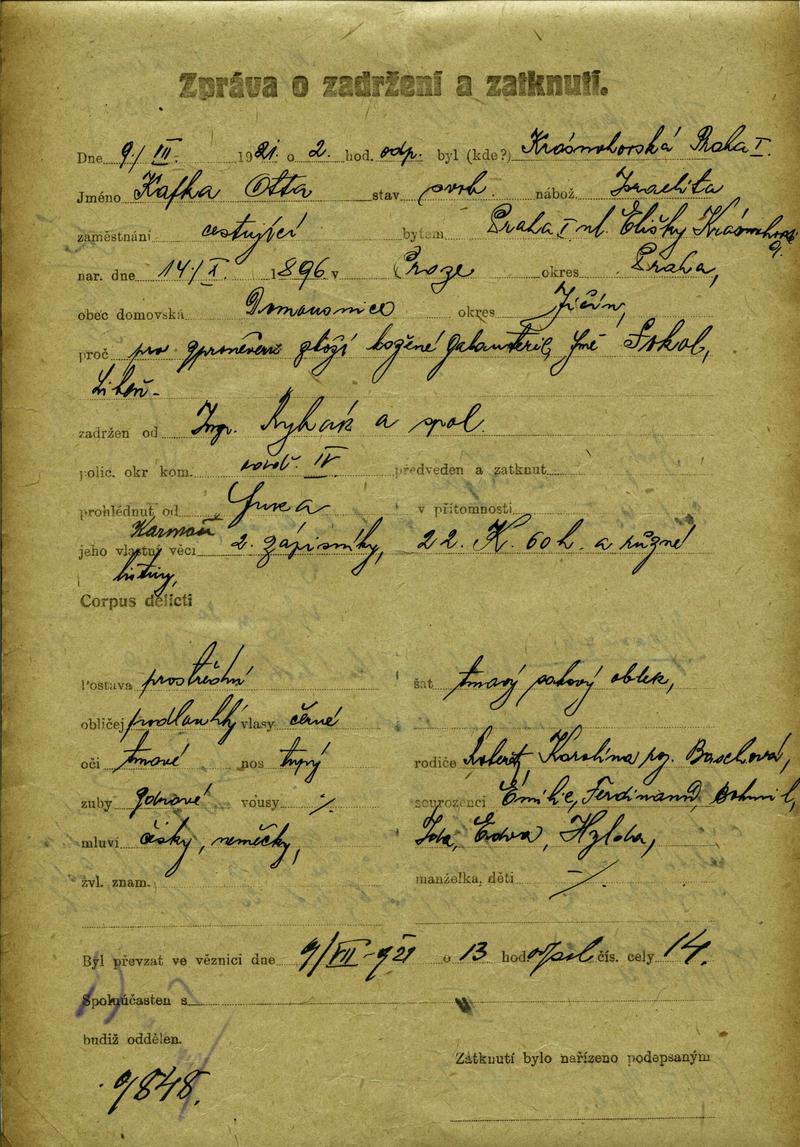 Zpráva o zadržení a zatknutí.
Dne 9/III. 1921. o 2. hod. odp. byl (kde?) Krásnohorská Praha I.
Jméno Kafka Otta stav svob. nábož. Israelita
zaměstnání cestující bytem Praha I ul. Elišky Krásnohorské 9.
nar. dne 14/I. 1896 v Praze okres Praha,
obec domovská Domousnice okres Jičín,
proč pro zpronevěru zboží galanterie, Sokol,
Libeň.
zadržen od Insp. Rybák a spol.
polic. okr kom. IV předveden a zatknut
prohlédnut od v přítomnosti
jeho vlastní věci 2. zápisníky, 22. K. 60 h. a různé
listiny,
Corpus delicti
Postava prostřední šat tmavý sakový oblek,
obličej podlouhlý vlasy černé
oči tmavé nos tupý rodiče Robert, Karolína roz. Baschová,
zuby zdravé vousy ./. sourozenci Emilie, Ferdinand, Bohumil,
mluví česky, německy, Ida, Edva, Hylda,
zvl. znam. manželka, děti ./.
Byl převzat ve věznici dne 9/VII-921 o 13 hod odpol. čís. cely 14.
Spoluúčasten s
budiž oddělen.
Zatknutí bylo nařízeno podepsaným
9848.